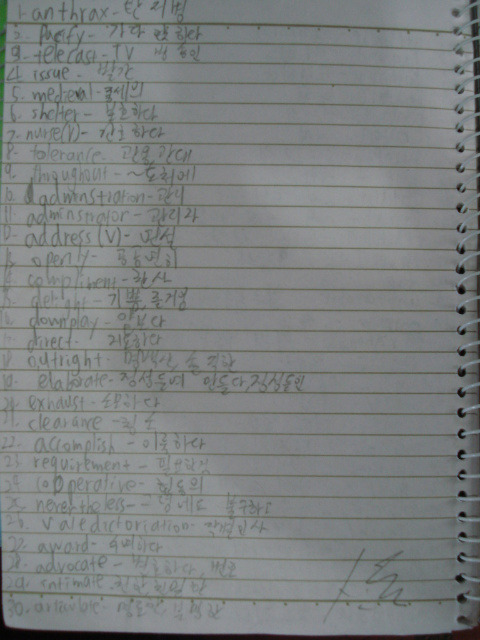 1. anthrax - 탄저병
2. Pacify -
3. telecast - TV 방송
4. issue - 발간
5. medieval - 중세의
6. shelter - 보호하다
7. nurse(V) - 간호하다
8. tolerance - 관용 관대
9. throughout - ~도처에
10. adminstration - 관리
11. adminstrator - 관리자
12. address (V) - 연설
13. openly - 공공연히
14. compliment - 찬사
15. delight - 기쁨, 즐거움
16. downplay -
17. direct -
18. outright -
19. elaborate - 정성들여 만들다, 정성들인
20. exhaust - 소모하다
21. clearance -
22. accomplish - 이룩하다
23. requirement - 필요조건
24. cooperative - 협동의
25. nevertheless - 그럼에도 불구하고
26. Valedictoriation -
27. award - 수여하다
28. advocate -
29. intimate - 친한, 친밀한
30. articulate -